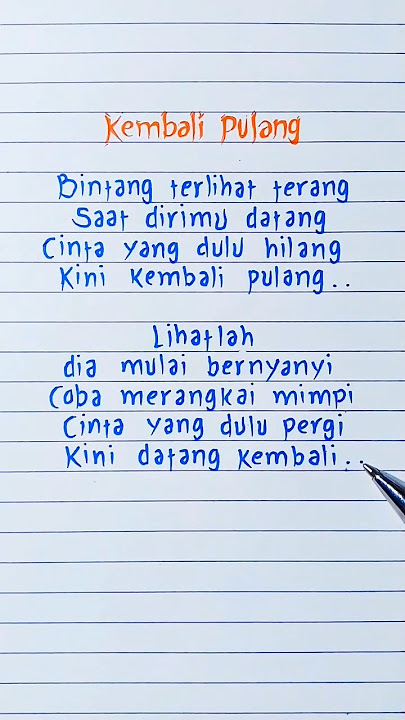 Kembali Pulang
Bintang terlihat terang
Saat dirimu datang
Cinta yang dulu hilang
Kini Kembali pulang..
Lihatlah
dia mulai bernyanyi
Coba merangkai mimpi
Cinta yang dulu pergi
Kini datang Kembali..